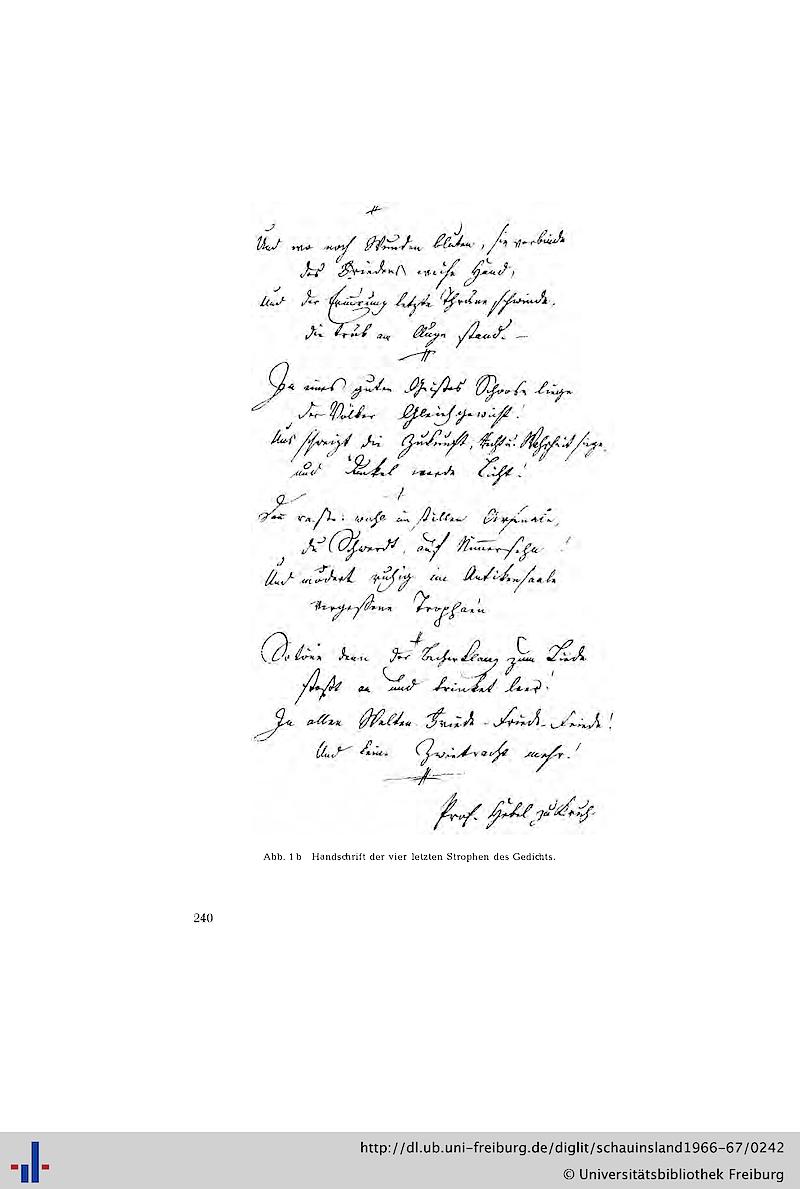 Und wo noch Wunden bluten, sie verbinde
des Friedens weiche Hand,
Und der Erinnerung letzte Thräne schwinde,
die trüb am Auge stand. —
In eines guten Geistes Schoose liege
der Völker Gleichgewicht!
Uns schweigt die Zukunft, Recht u. Wahrheit siege,
und Dunkel werde Licht!
Dann raste wohl im stillen Arsenale,
du Schwerdt, auf Nimmersehn!
Und modert ruhig im Antikensaale
vergessene Trophaen
So töne denn der Becherklang zum Liede
stoßt an und trinket leer!
In allen Welten Friede - Friede - Friede!
Und keine Zwietracht mehr!
Prof. Hebel zu
Abb. 1b Handschrift der vier letzten Strophen des Gedichts.
240
http://dl.ub.uni-freiburg.de/diglit/schauinsland1966-67/0242
© Universitätsbibliothek Freiburg